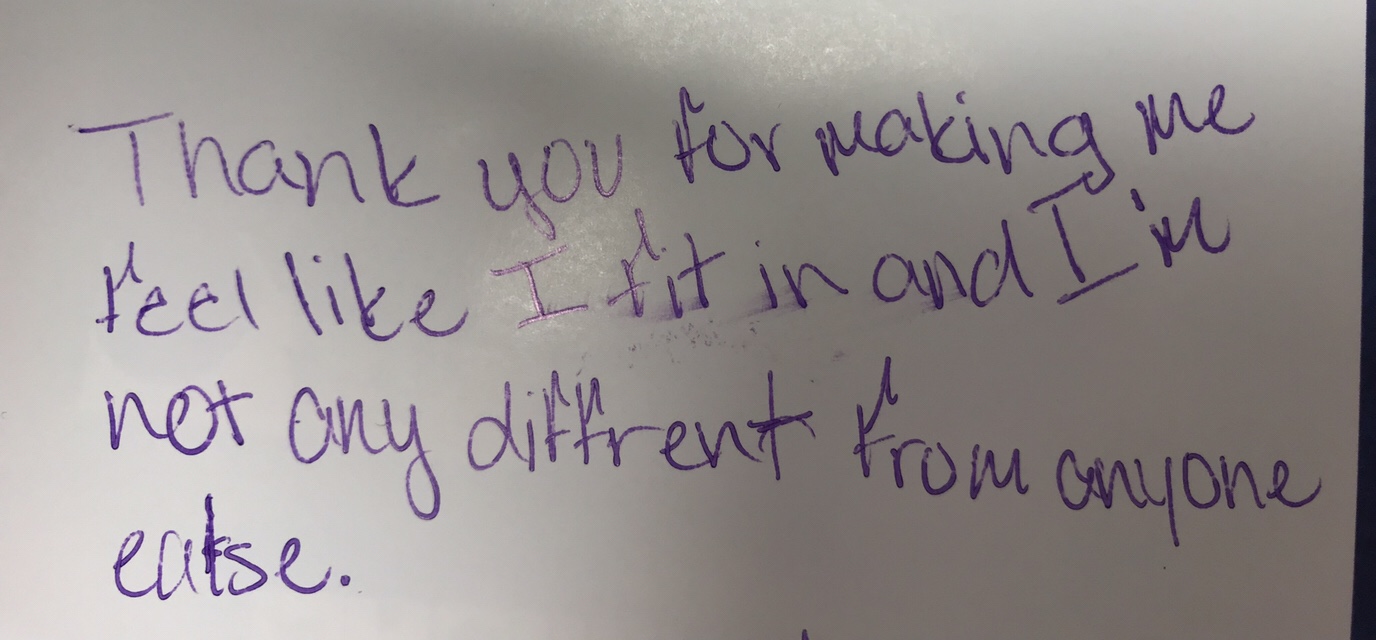 Thank you for making me
feel like I fit in and I'm
not any diffrent from anyone
ealse.